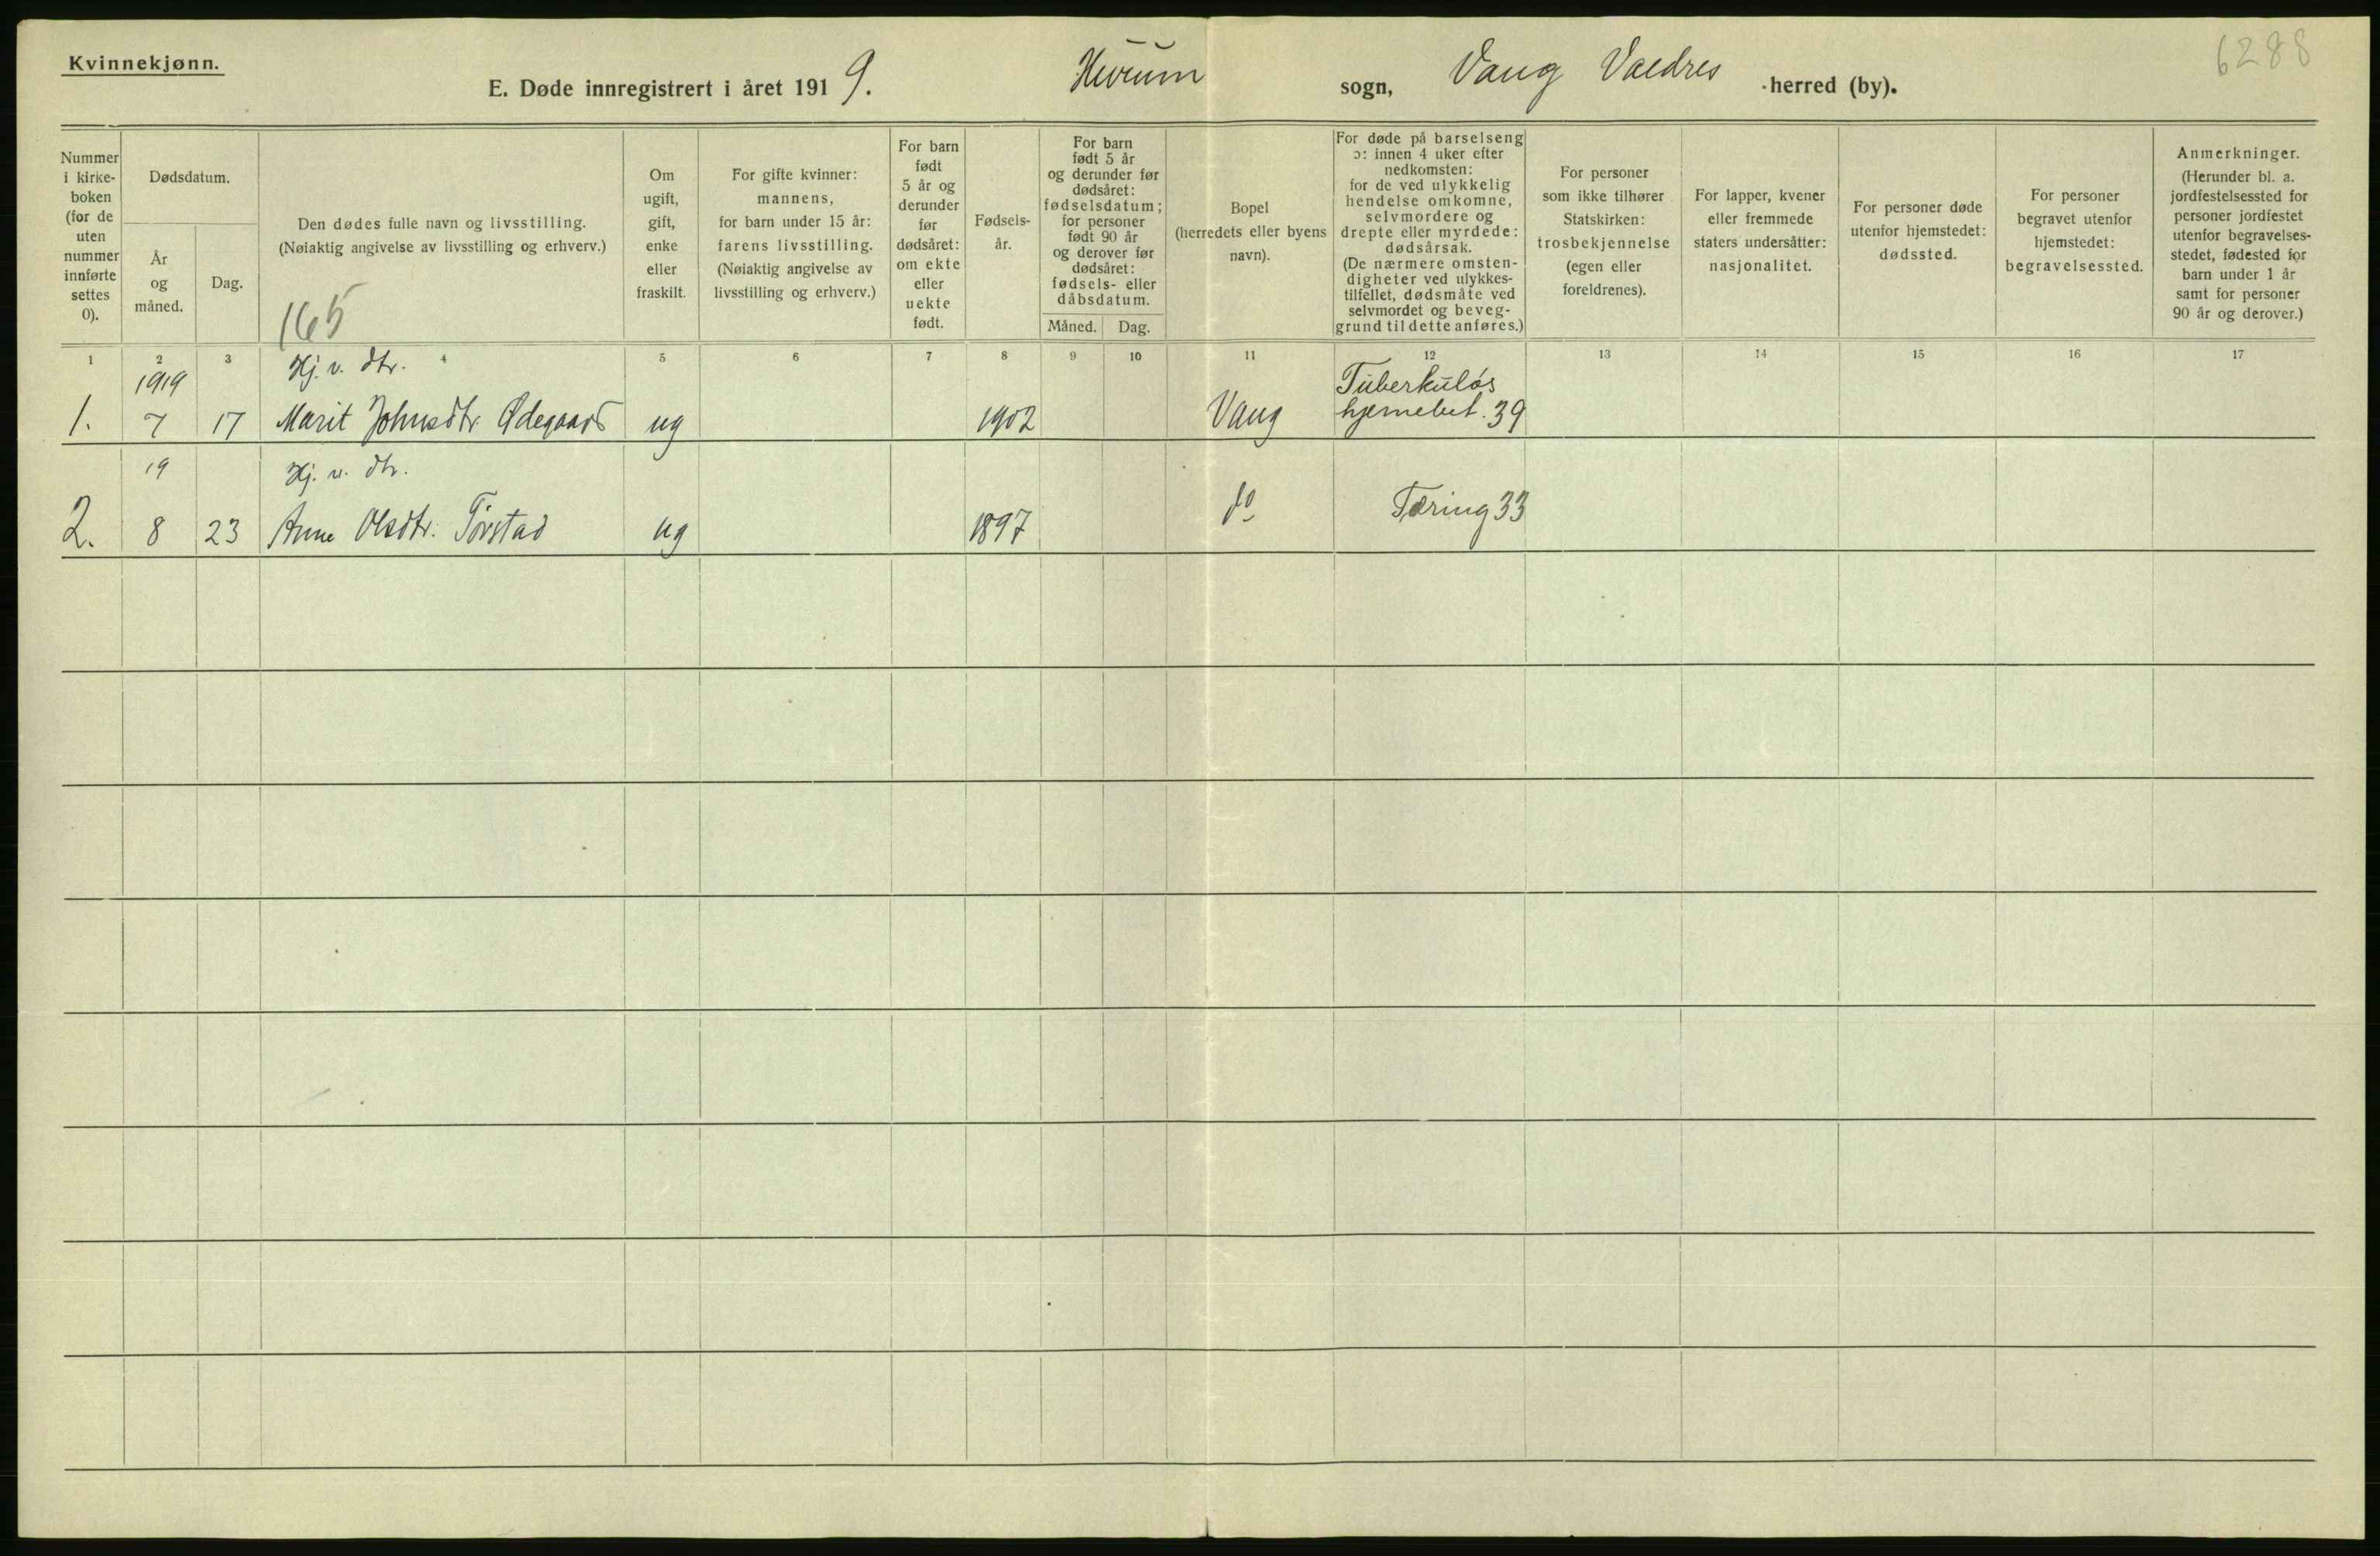 Kvinnekjønn.
6288
E. Døde innregistrert i året 1919. Hurum sogn, Vang Valdres herred (by).
Nummer
i kirke-
boken
(for de
uten
nummer
innførte
settes
0).
Dødsdatum.
År
og
måned.
Dag.
Den dødes fulle navn og livsstilling.
(Nøiaktig angivelse av livsstilling og erhverv.)
165
Om
ugift,
gift,
enke
eller
fraskilt.
For gifte kvinner:
mannens,
for barn under 15 år:
farens livsstilling.
(Nøiaktig angivelse av
livsstilling og erhverv.)
For barn
født
5 år og
derunder
før
dødsåret:
om ekte
eller
uekte
født.
Fødsels-
år.
For barn
født 5 år
og derunder før
dødsåret:
fødselsdatum;
for personer
født 90 år
og derover før
dødsåret:
fødsels- eller
dåbsdatum.
Måned. Dag.
Bopel
(herredets eller byens
navn).
For døde på barselseng
ɔ: innen 4 uker efter
nedkomsten:
for de ved ulykkelig
hendelse omkomne,
selvmordere og
drepte eller myrdede:
dødsårsak.
(De nærmere omsten-
digheter ved ulykkes-
tilfellet, dødsmåte ved
selvmordet og beveg-
grund til dette anføres.)
For personer
som ikke tilhører
Statskirken:
trosbekjennelse
(egen eller
foreldrenes).
For lapper, kvener
eller fremmede
staters undersåtter:
nasjonalitet.
For personer døde
utenfor hjemstedet:
dødssted.
For personer
begravet utenfor
hjemstedet:
begravelsessted.
Anmerkninger.
(Herunder bl. a.
jordfestelsessted for
personer jordfestet
utenfor begravelses-
stedet, fødested for
barn under 1 år
samt for personer
90 år og derover.)
1 2 3 4 5 6 7 8 9 10 11 12 13 14 15 16 17
1919 Hj. v. dtr. Tuberkuløs
1. 7 17 Marit Johnsdtr. Ødegaard ug 1902 Vang hjernebet. 39
19 Hj. v. dtr.
2. 8 23 Anne Olsdtr. Törstad ug 1897 do Tæring 33